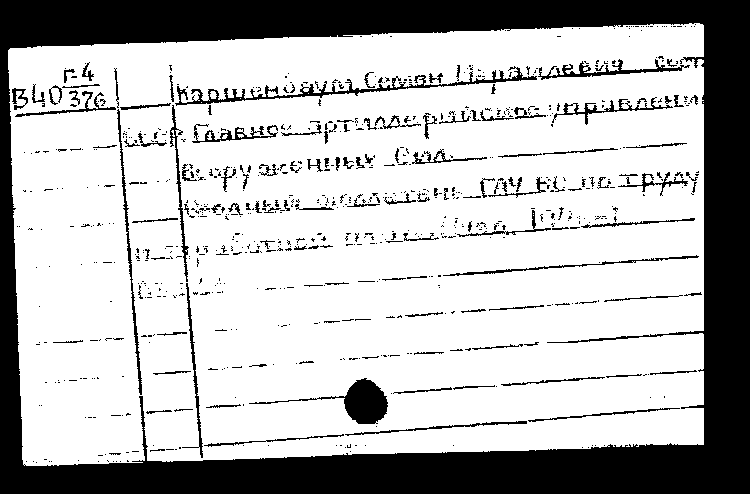 В40 Г-4/376
Каршенбаум, Семен Израилевич сост
СССР. Главное артиллерийское управлени
Вооруженных Сил.
Сводный бюллетень ГАУ ВС по труду
и заработной плате.